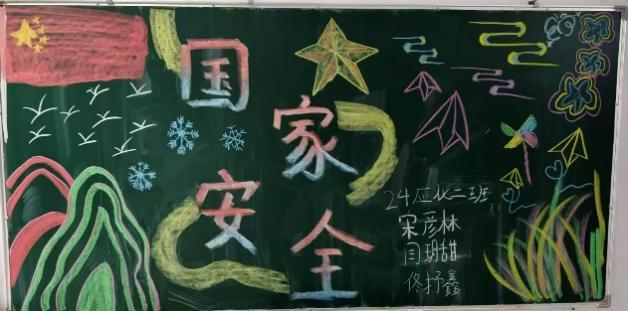 国家
安全
24应化二班
宋彦林
闫玥甜
佟抒鑫